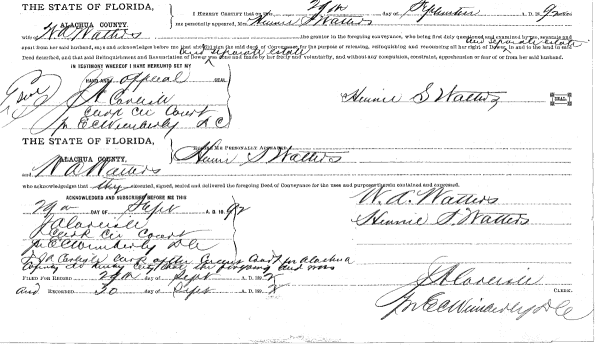 THE STATE OF FLORIDA,
ALACHUA COUNTY.
I HEREBY CERTIFY that on this 29th day of September A. D. 1892 before
me personally appeared, Mrs. Hennie S Watters
wife of W A Watters the grantor in the foregoing conveyance, who being by me duly questioned and examined separate and
apart from her said husband, says and acknowledges before me that did sign the said deed of Conveyance for the purpose of releasing, relinquishing and renouncing all her right of Dower, in and to the land in said
and separate estate
Deed described, and that said Relinquishment and Renunciation of Dower was done and made by her freely and voluntarily, and without any compulsion, constraint, apprehension or fear of or from her said husband.
IN TESTIMONY WHEREOF I HAVE HEREUNTO SET MY
HAND AND official
Seal
J A Carlisle
Clerk Cir Court
pr E C Wimberly D C
Hennie S Watters
SEAL
THE STATE OF FLORIDA,
ALACHUA COUNTY.
BEFORE ME PERSONALLY APPEARED Hennie S Watters
and W A Watters
who acknowledges that they executed, signed, sealed and delivered the foregoing Deed of Conveyance for the uses and purposes therein contained and expressed.
ACKNOWLEDGED AND SUBSCRIBED BEFORE ME THIS
29th DAY OF Sept A. D. 1892
J A Carlisle
Clerk Cir Court
pr E C Wimberly D C
W. A. Watters
Hennie S. Watters
I J A Carlisle Clerk of the Circuit Court for Alachua
County do hereby certify that the foregoing deed was
FILED FOR RECORD 29th day of Sept A. D. 1892
and RECORDED 30 day of Sept A. D. 1892
J A Carlisle CLERK.
pr E C Wimberly D C